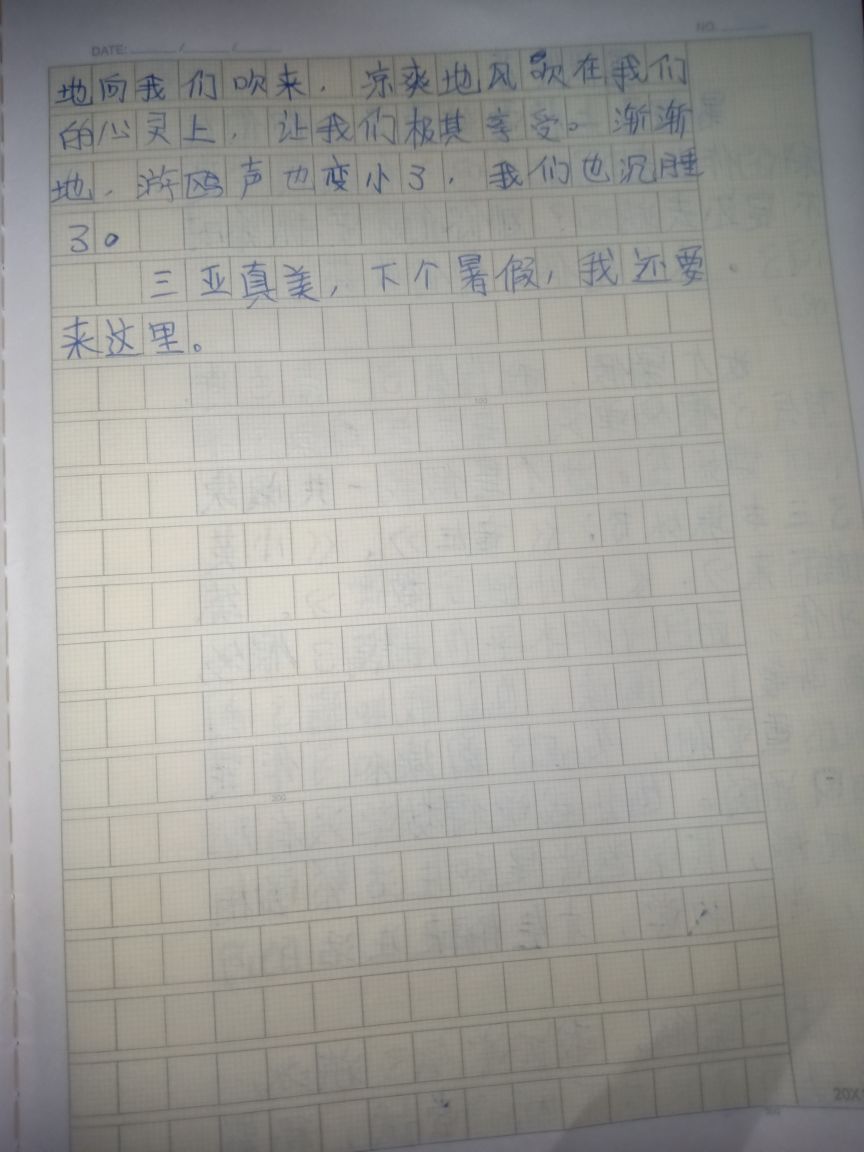 DATE: / /
NO.
地向我们吹来，凉爽地风吹在我们
的心灵上，让我们极其享受。渐渐
地，游鸥声也变小了，我们也沉睡
了。
三亚真美，下个暑假，我还要
来这里。
100
200
300
20X